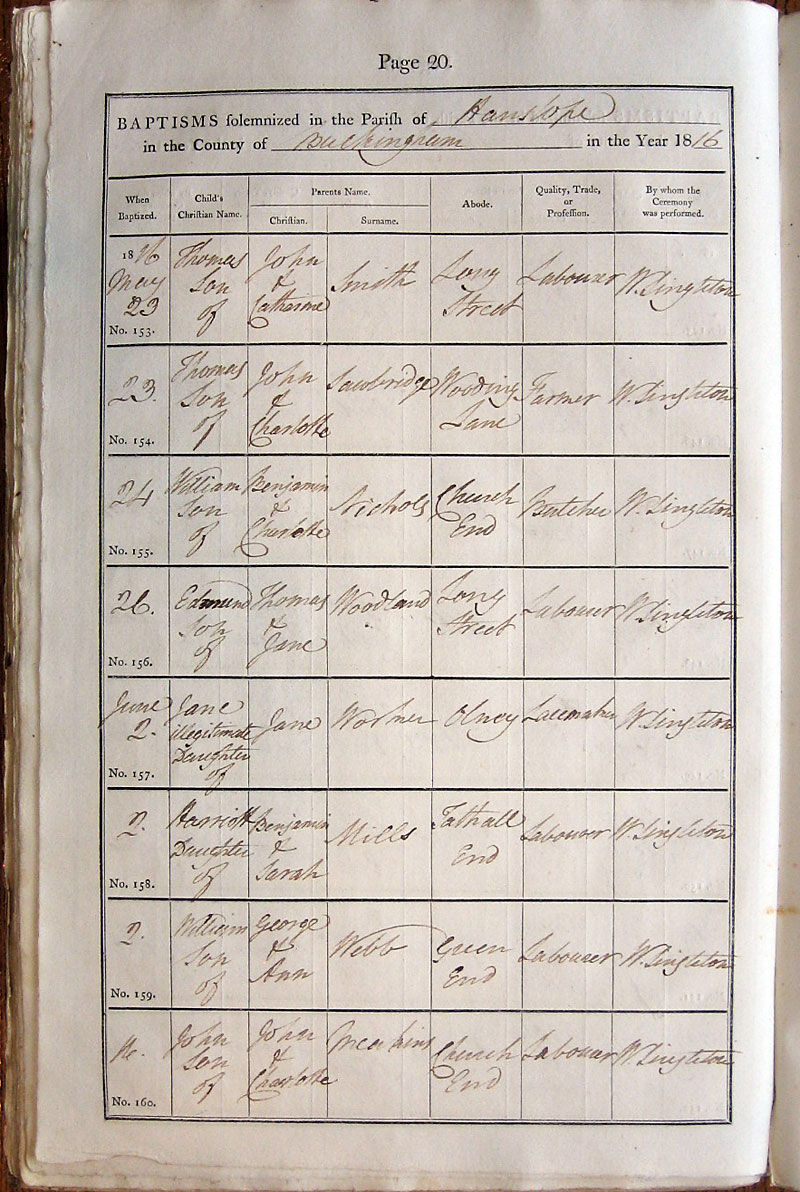 Page 20.
BAPTISMS solemnized in the Parish of Hanslope
in the County of Buckingham in the Year 1816
When Baptized.
Child's Christian Name.
Parents Name.
Christian.
Surname.
Abode.
Quality, Trade, or Profession.
By whom the Ceremony was performed.
1816 May 23 No. 153.
Thomas Son of
John & Catharine
Smith
Long Street
Labourer
W. Singleton
23. No. 154.
Thomas Son of
John & Charlotte
Sawbridge
Wooding Lane
Farmer
W. Singleton
24 No. 155.
William Son of
Benjamin & Charlotte
Nichols
Church End
Butcher
W. Singleton
26. No. 156.
Edmund Son of
Thomas & Jane
Woodland
Long Street
Labourer
W. Singleton
June 2. No. 157.
Jane illegitimate Daughter of
Jane
Worker
Olney
Lacemaker
W. Singleton
2. No. 158.
Harriott Daughter of
Benjamin & Sarah
Mills
Tathall End
Labourer
W. Singleton
2. No. 159.
William Son of
George & Ann
Webb
Green End
Labourer
W. Singleton
No. 160.
John Son of
John & Charlotte
Meakins
Church End
Labourer
W. Singleton